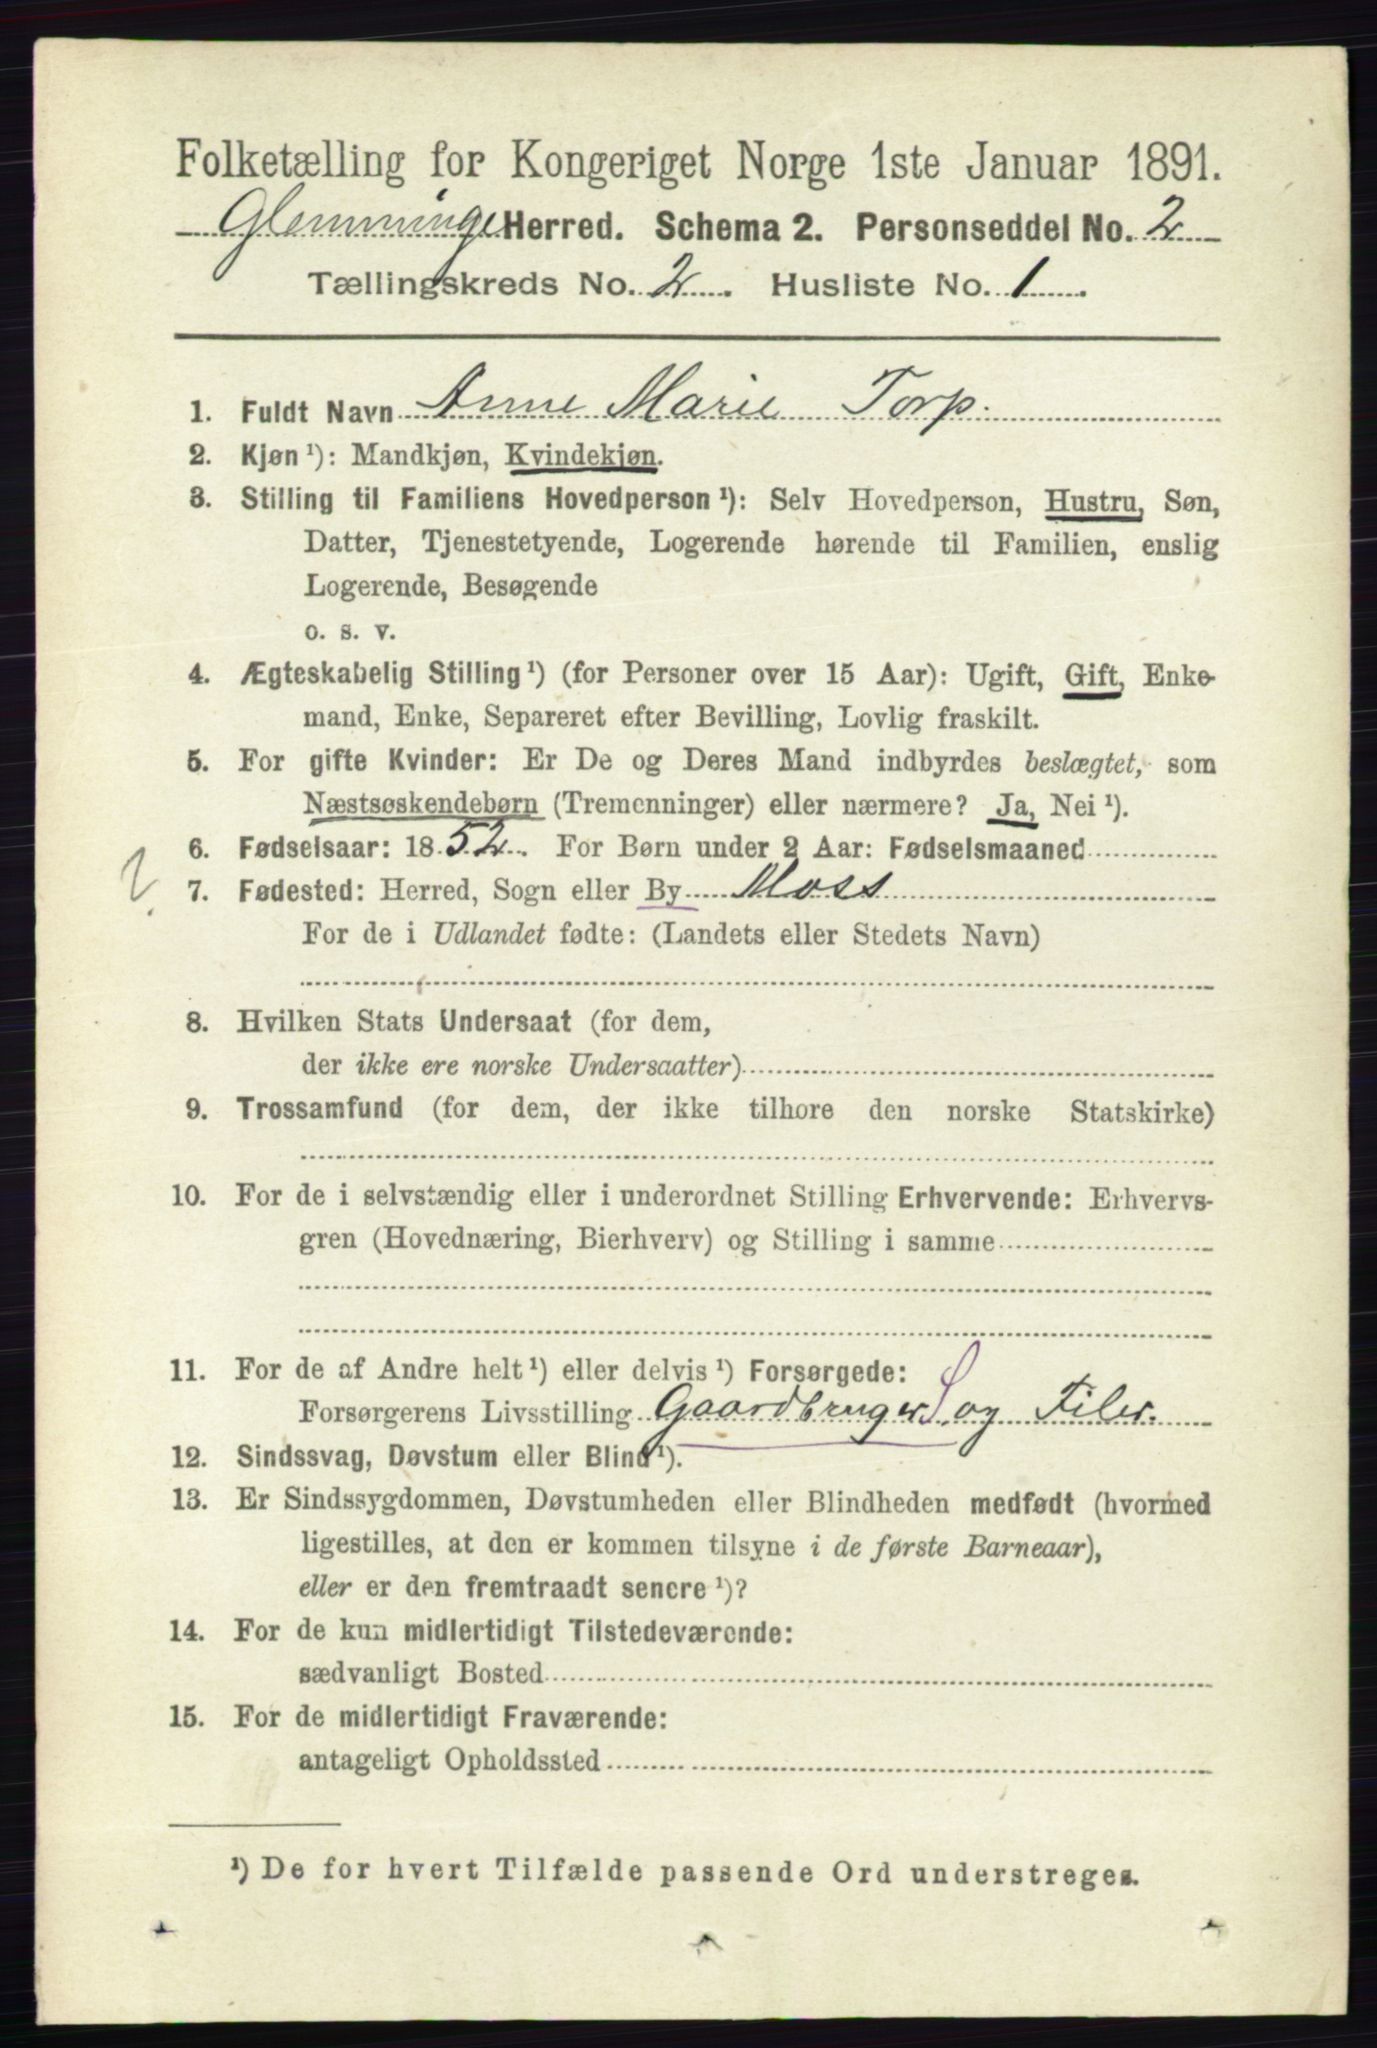 Folketælling for Kongeriget Norge 1ste Januar 1891.
Glemminge Herred. Schema 2. Personseddel No. 2
Tællingskreds No. 2. Husliste No. 1.
1. Fuldt Navn Anne Marie Torp.
2. Kjøn¹): Mandkjøn, Kvindekjøn.
3. Stilling til Familiens Hovedperson¹): Selv Hovedperson, Hustru, Søn,
Datter, Tjenestetyende, Logerende hørende til Familien, enslig
Logerende, Besøgende
o. s. v.
4. Ægteskabelig Stilling¹) (for Personer over 15 Aar): Ugift, Gift, Enke-
mand, Enke, Separeret efter Bevilling, Lovlig fraskilt.
5. For gifte Kvinder: Er De og Deres Mand indbyrdes beslægtet, som
Næstsøskendebørn (Tremenninger) eller nærmere? Ja, Nei¹).
6. Fødselsaar: 1852. For Børn under 2 Aar: Fødselsmaaned
2. 7. Fødested: Herred, Sogn eller By Moss
For de i Udlandet fødte: (Landets eller Stedets Navn)
8. Hvilken Stats Undersaat (for dem,
der ikke ere norske Undersaatter)
9. Trossamfund (for dem, der ikke tilhøre den norske Statskirke)
10. For de i selvstændig eller i underordnet Stilling Erhvervende: Erhvervs-
gren (Hovednæring, Bierhverv) og Stilling i samme
11. For de af Andre helt¹) eller delvis¹) Forsørgede:
Forsørgerens Livsstilling Gaardbruger S og Filer.
12. Sindssvag, Døvstum eller Blind¹).
13. Er Sindssygdommen, Døvstumheden eller Blindheden medfødt (hvormed
ligestilles, at den er kommen tilsyne i de første Barneaar),
eller er den fremtraadt senere¹)?
14. For de kun midlertidigt Tilstedeværende:
sædvanligt Bosted
15. For de midlertidigt Fraværende:
antageligt Opholdssted
¹) De for hvert Tilfælde passende Ord understreges.